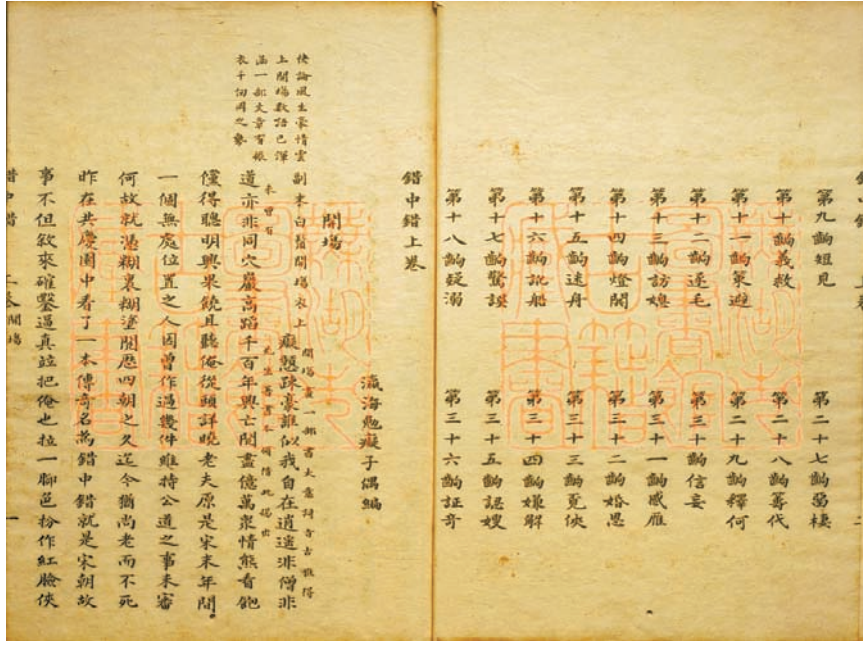 第九齣短見　第二十七齣棲
第十齣義救　第二十八齣籌代
第十一齣策避　第二十九齣釋何
第十二齣逐毛　第三十齣信妄
第十三齣訪媳　第三十一齣感雁
第十四齣燈鬧　第三十二齣婚思
第十五齣迷舟　第三十三齣覓俠
第十六齣訛船　第三十四齣嫌解
第十七齣驚誤　第三十五齣認嫂
第十八齣疑溺　第三十六齣証奇
錯中錯上卷
瀛海勉癡子偶編
開場
快論風生豪情雲
上開場數語已渾
涵一部文章有振
衣千仞岡之象
副末白鬚開場衣上
開場盡一部書大意詞句古雅得
未曾有
癡憨疎豪誰似我自在逍遙非僧非
道亦非同穴巖高蹈千百年興亡閱盡億萬衆情態看飽
僅得聰明興果饒且聽俺從頭詳曉老夫原是宋末年間
一個無處位置之人因曾作過幾件維持公道之事未審
何故就憑糊裏糊塗閱歷四朝之久迄今猶尚老而不死
昨在共慶園中看了一本傳奇名為錯中錯就是宋朝故
事不但敘來確鑿逼真竝把俺也拉一腳色粉作紅臉俠
錯中錯　上卷開場　一